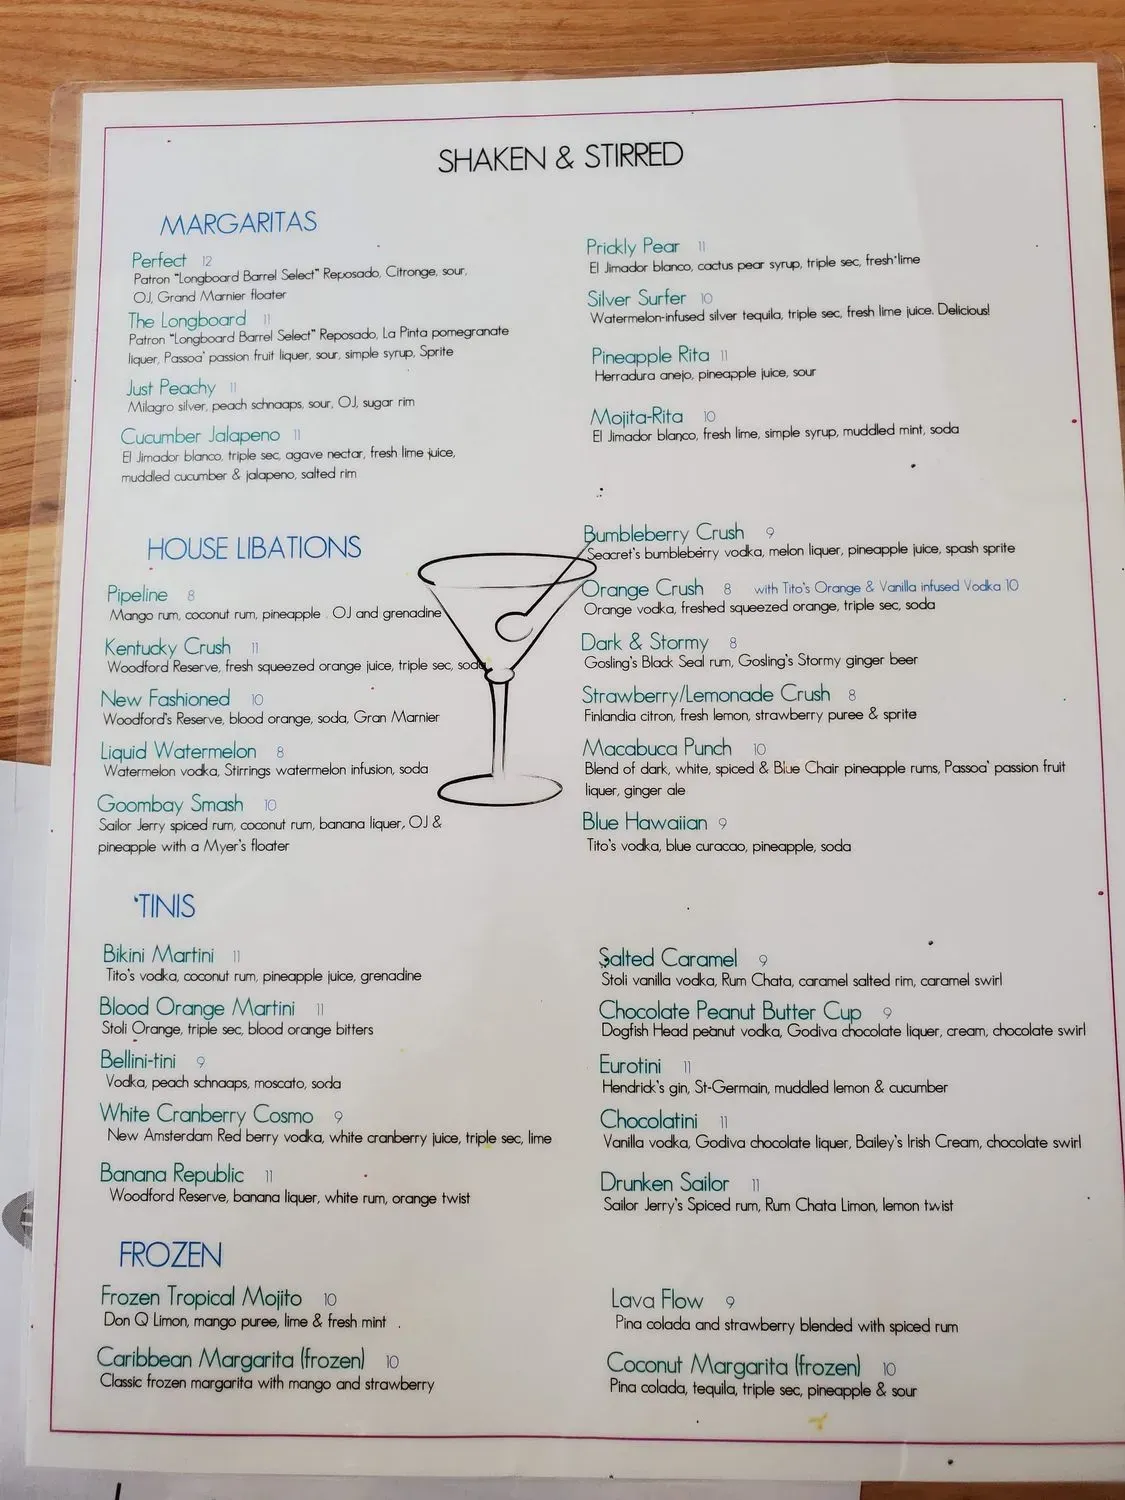 SHAKEN & STIRRED
MARGARITAS
Perfect 12
Patron "Longboard Barrel Select" Reposado, Citronge, sour,
OJ, Grand Marnier floater
The Longboard 11
Patron "Longboard Barrel Select" Reposado, La Pinta pomegranate
liquer, Passoa' passion fruit liquer, sour, simple syrup, Sprite
Just Peachy 11
Milagro silver, peach schnaaps, sour, OJ, sugar rim
Cucumber Jalapeno 11
El Jimador blanco, triple sec, agave nectar, fresh lime juice,
muddled cucumber & jalapeno, salted rim
Prickly Pear 11
El Jimador blanco, cactus pear syrup, triple sec, fresh lime
Silver Surfer 10
Watermelon-infused silver tequila, triple sec, fresh lime juice. Delicious!
Pineapple Rita 11
Herradura anejo, pineapple juice, sour
Mojita-Rita 10
El Jimador blanco, fresh lime, simple syrup, muddled mint, soda
HOUSE LIBATIONS
Pipeline 8
Mango rum, coconut rum, pineapple . OJ and grenadine
Kentucky Crush 11
Woodford Reserve, fresh squeezed orange juice, triple sec, soda
New Fashioned 10
Woodford's Reserve, blood orange, soda, Gran Marnier
Liquid Watermelon 8
Watermelon vodka, Stirrings watermelon infusion, soda
Goombay Smash 10
Sailor Jerry spiced rum, coconut rum, banana liquer, OJ &
pineapple with a Myer's floater
Bumbleberry Crush 9
Seacret's bumbleberry vodka, melon liquer, pineapple juice, spash sprite
Orange Crush 8 with Tito's Orange & Vanilla infused Vodka 10
Orange vodka, freshed squeezed orange, triple sec, soda
Dark & Stormy 8
Gosling's Black Seal rum, Gosling's Stormy ginger beer
Strawberry/Lemonade Crush 8
Finlandia citron, fresh lemon, strawberry puree & sprite
Macabuca Punch 10
Blend of dark, white, spiced & Blue Chair pineapple rums, Passoa' passion fruit
liquer, ginger ale
Blue Hawaiian 9
Tito's vodka, blue curacao, pineapple, soda
'TINIS
Bikini Martini 11
Tito's vodka, coconut rum, pineapple juice, grenadine
Blood Orange Martini 11
Stoli Orange, triple sec, blood orange bitters
Bellini-tini 9
Vodka, peach schnaaps, moscato, soda
White Cranberry Cosmo 9
New Amsterdam Red berry vodka, white cranberry juice, triple sec, lime
Banana Republic 11
Woodford Reserve, banana liquer, white rum, orange twist
Salted Caramel 9
Stoli vanilla vodka, Rum Chata, caramel salted rim, caramel swirl
Chocolate Peanut Butter Cup 9
Dogfish Head peanut vodka, Godiva chocolate liquer, cream, chocolate swirl
Eurotini 11
Hendrick's gin, St-Germain, muddled lemon & cucumber
Chocolatini 11
Vanilla vodka, Godiva chocolate liquer, Bailey's Irish Cream, chocolate swirl
Drunken Sailor 11
Sailor Jerry's Spiced rum, Rum Chata Limon, lemon twist
FROZEN
Frozen Tropical Mojito 10
Don Q Limon, mango puree, lime & fresh mint .
Caribbean Margarita (frozen) 10
Classic frozen margarita with mango and strawberry
Lava Flow 9
Pina colada and strawberry blended with spiced rum
Coconut Margarita (frozen) 10
Pina colada, tequila, triple sec, pineapple & sour